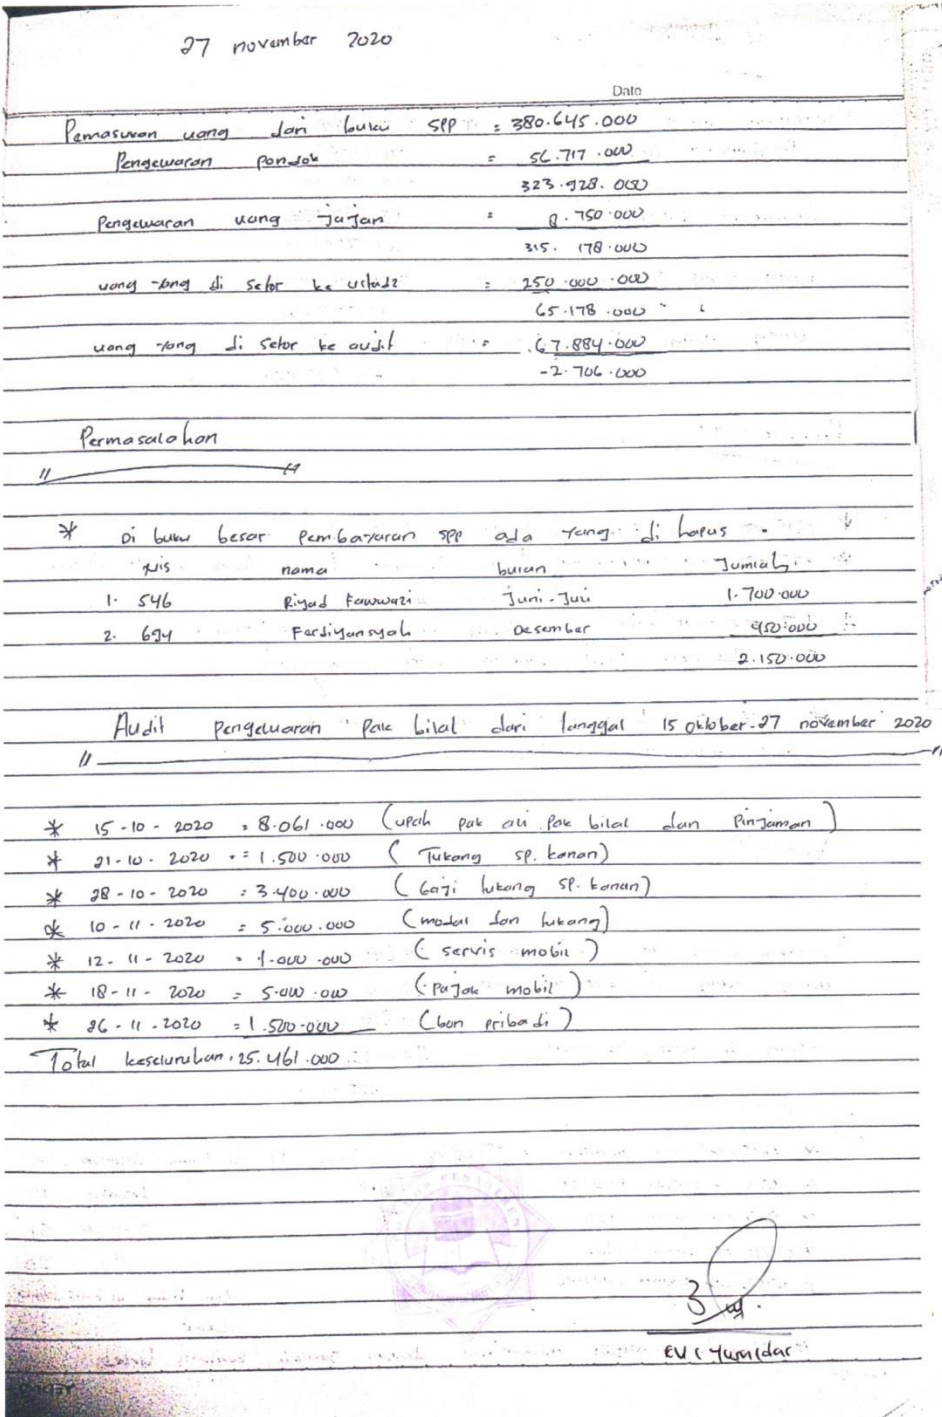 27 november 2020
Date
Pemasukan uang dari buku SPP = 380.645.000
Pengeluaran pondok = 56.717.000
323.928.000
Pengeluaran uang jajan = 8.750.000
315.178.000
uang yang di setor ke ustadz = 250.000.000
65.178.000
uang yang di setor ke audit = 67.884.000
-2.706.000
Permasalahan
* Di buku besar pembayaran SPP ada yang di hapus.
NIS nama bulan Jumlah
1. 546 Riyad Fawwazi Juni-Juli 1.700.000
2. 694 Fardiyansyah Desember 450.000
2.150.000
Audit pengeluaran pak bilal dari tanggal 15 oktober-27 november 2020
* 15-10-2020 = 8.061.000 (upah pak ali pak bilal dan Pinjaman)
* 21-10-2020 = 1.500.000 (Tukang sp. kanan)
* 28-10-2020 = 3.400.000 (Gaji tukang sp. kanan)
* 10-11-2020 = 5.000.000 (modal dan tukang)
* 12-11-2020 = 1.000.000 (servis mobil)
* 18-11-2020 = 5.000.000 (pajak mobil)
* 26-11-2020 = 1.500.000 (bon pribadi)
Total keseluruhan = 25.461.000